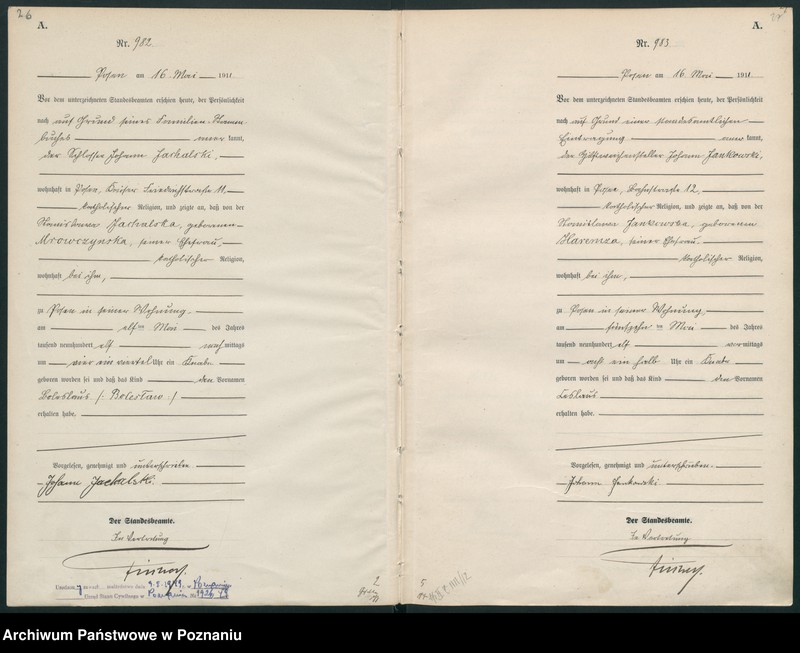 26
A.
Nr. 982
Posen am 16. Mai 1911
Vor dem unterzeichneten Standesbeamten erschien heute, der Persönlichkeit
nach auf Grund seines Familien-Stamm-
buches kannt,
der Schlosser Johann Jachalski,
wohnhaft in Posen, Kaiser Friedrichstraße 11.
katholischer Religion, und zeigte an, daß von der
Stanislawa Jachalska, geborenen
Mrowczynska, seiner Ehefrau,
katholischer Religion,
wohnhaft bei ihm,
zu Posen in seiner Wohnung
am elften Mai des Jahres
tausend neunhundert elf nachmittags
um vier ein viertel Uhr ein Knabe
geboren worden sei und daß das Kind den Vornamen
Boleslaus /: Bolesław :/
erhalten habe.
Vorgelesen, genehmigt und unterschrieben
Johann Jachalski.
Der Standesbeamte.
In Vertretung
A.
Nr. 983
Posen am 16. Mai 1911
Vor dem unterzeichneten Standesbeamten erschien heute, der Persönlichkeit
nach auf Grund einer standesamtlichen
Eintragung kannt,
der Johann Jankowski,
wohnhaft in Posen, Bahnstraße 12,
katholischer Religion, und zeigte an, daß von der
Jankowska, geborenen
Haremza, seiner Ehefrau
katholischer Religion,
wohnhaft bei ihm,
zu Posen in seiner Wohnung
am fünfzehnten Mai des Jahres
tausend neunhundert elf vormittags
um acht ein halb Uhr ein Knabe
geboren worden sei und daß das Kind den Vornamen
Ceslaus
erhalten habe.
Vorgelesen, genehmigt und unterschrieben
Johann Jankowski
Der Standesbeamte.
In Vertretung
Archiwum Państwowe w Poznaniu